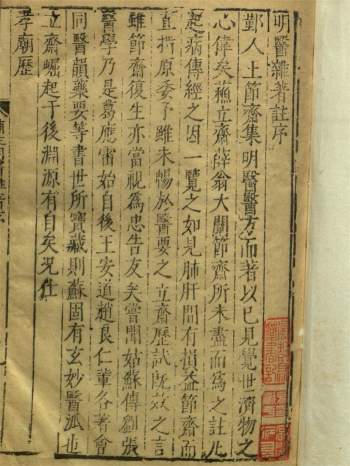 明醫雜著註序
鄞人王節齋集明醫醫方而著以己見覺世濟物之
心偉矣蘇立齋薛翁大闡節齋所未盡而為之註凡
起病傳經之因一覽之如見肺肝間有損益節齋而
直指原委予雖未暢於醫要之立齋歷試既效之言
雖節齋復生亦當視為忠告友矣嘗聞姑蘇傳劉張
醫學乃是葛應雷始自後王安道趙良仁輩各著會
同醫韻藥要等書世所寶藏則蘇固有玄妙醫派也
立齋崛起于後淵源有自矣況仕
孝廟歷